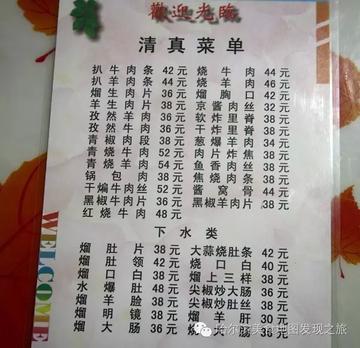 歡迎光臨
清真菜单
扒牛肉条 42元 烧牛肉 44元
扒羊肉条 44元 烧羊肉 46元
熘生肉片 36元 熘胸口 42元
羊生肉片 38元 京酱肉丝 32元
孜然牛肉 36元 软炸里脊 38元
孜然羊肉 36元 干炸里脊 38元
青椒肉段 38元 葱爆羊肉 34元
青烧牛肉 52元 肉片炸焦 38元
青烧羊肉 54元 鱼香肉丝 38元
锅包肉 38元 焦烧肉条 38元
干煸牛肉丝 52元 酱窝骨 44元
黑椒牛肉片 36元 黑椒羊肉片 38元
红烧牛肉 48元
下水类
熘肚片 38元 大蒜烧肚条 42元
熘肚领 42元 烧口白 40元
熘口白 38元 熘上三样 38元
水爆肚 48元 尖椒炒大肠 36元
熘羊脸 38元 尖椒炒肚丝 38元
熘明镜 38元 熘羊肝 30元
熘大肠 36元 大肠 36元
WELCOME
哈尔滨美食地图发现之旅